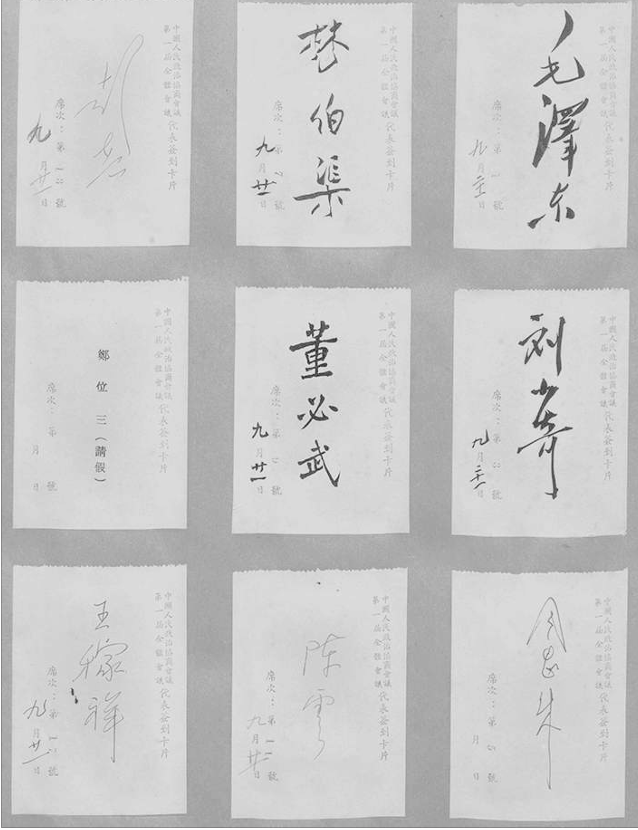 中國人民政治協商會議
第一屆全體會議代表簽到卡片
毛澤东
席次：第 號
九月二十一日
中國人民政治協商會議
第一屆全體會議代表簽到卡片
刘少奇
席次：第 號
九月二十一日
中國人民政治協商會議
第一屆全體會議代表簽到卡片
周恩来
席次：第 號
月 日
中國人民政治協商會議
第一屆全體會議代表簽到卡片
林伯渠
席次：第 號
九月廿一日
中國人民政治協商會議
第一屆全體會議代表簽到卡片
董必武
席次：第 號
九月廿一日
中國人民政治協商會議
第一屆全體會議代表簽到卡片
陈雲
席次：第 號
九月廿一日
中國人民政治協商會議
第一屆全體會議代表簽到卡片
席次：第 號
九月廿一日
中國人民政治協商會議
第一屆全體會議代表簽到卡片
鄭位三（請假）
席次：第 號
月 日
中國人民政治協商會議
第一屆全體會議代表簽到卡片
王稼祥
席次：第 號
九月廿一日